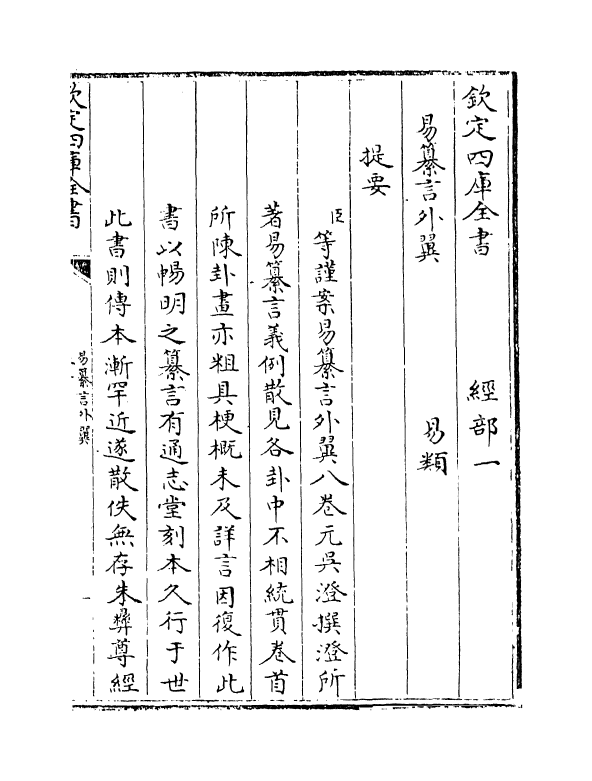 欽定四庫全書　經部一
易纂言外翼　易類
提要
臣等謹案易纂言外翼八卷元吳澄撰澄所
著易纂言義例散見各卦中不相統貫卷首
所陳卦畫亦粗具梗概未及詳言因復作此
書以暢明之纂言有通志堂刻本久行于世
此書則傳本漸罕近遂散佚無存朱彝尊經
欽定四庫全書
易纂言外翼